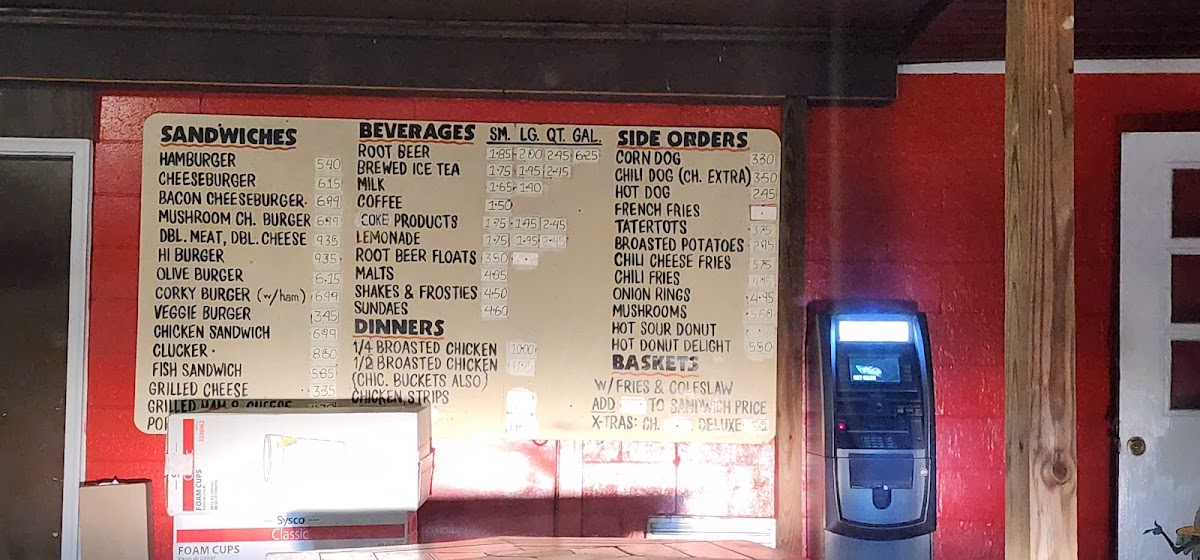 SANDWICHES
HAMBURGER 540
CHEESEBURGER 615
BACON CHEESEBURGER 699
MUSHROOM CH. BURGER 699
DBL. MEAT, DBL. CHEESE 935
HI BURGER 935
OLIVE BURGER 6.15
CORKY BURGER (w/ham) 699
VEGGIE BURGER 345
CHICKEN SANDWICH 699
CLUCKER
FISH SANDWICH 585
GRILLED CHEESE 335
GRILLED HAM & CHEESE
BEVERAGES SM. LG. QT. GAL.
ROOT BEER 1.85 2.00 2.45 6.25
BREWED ICE TEA 1.75 1.95 2.45
MILK 1.65 1.90
COFFEE 1.50
COKE PRODUCTS 1.75 1.95 2.45
LEMONADE 1.75 1.95 2.45
ROOT BEER FLOATS 350
MALTS 4.85
SHAKES & FROSTIES 4.50
SUNDAES 4.60
DINNERS
1/4 BROASTED CHICKEN
1/2 BROASTED CHICKEN
(CHIC. BUCKETS ALSO)
CHICKEN STRIPS
SIDE ORDERS
CORN DOG 330
CHILI DOG (CH. EXTRA) 350
HOT DOG 245
FRENCH FRIES
TATERTOTS
BROASTED POTATOES
CHILI CHEESE FRIES 575
CHILI FRIES
ONION RINGS 4.95
MUSHROOMS
HOT SOUR DONUT
HOT DONUT DELIGHT 550
BASKETS
W/FRIES & COLESLAW
ADD TO SANDWICH PRICE
X-TRAS: CH. DELUXE
FOAM CUPS
Sysco
Classic
FOAM CUPS